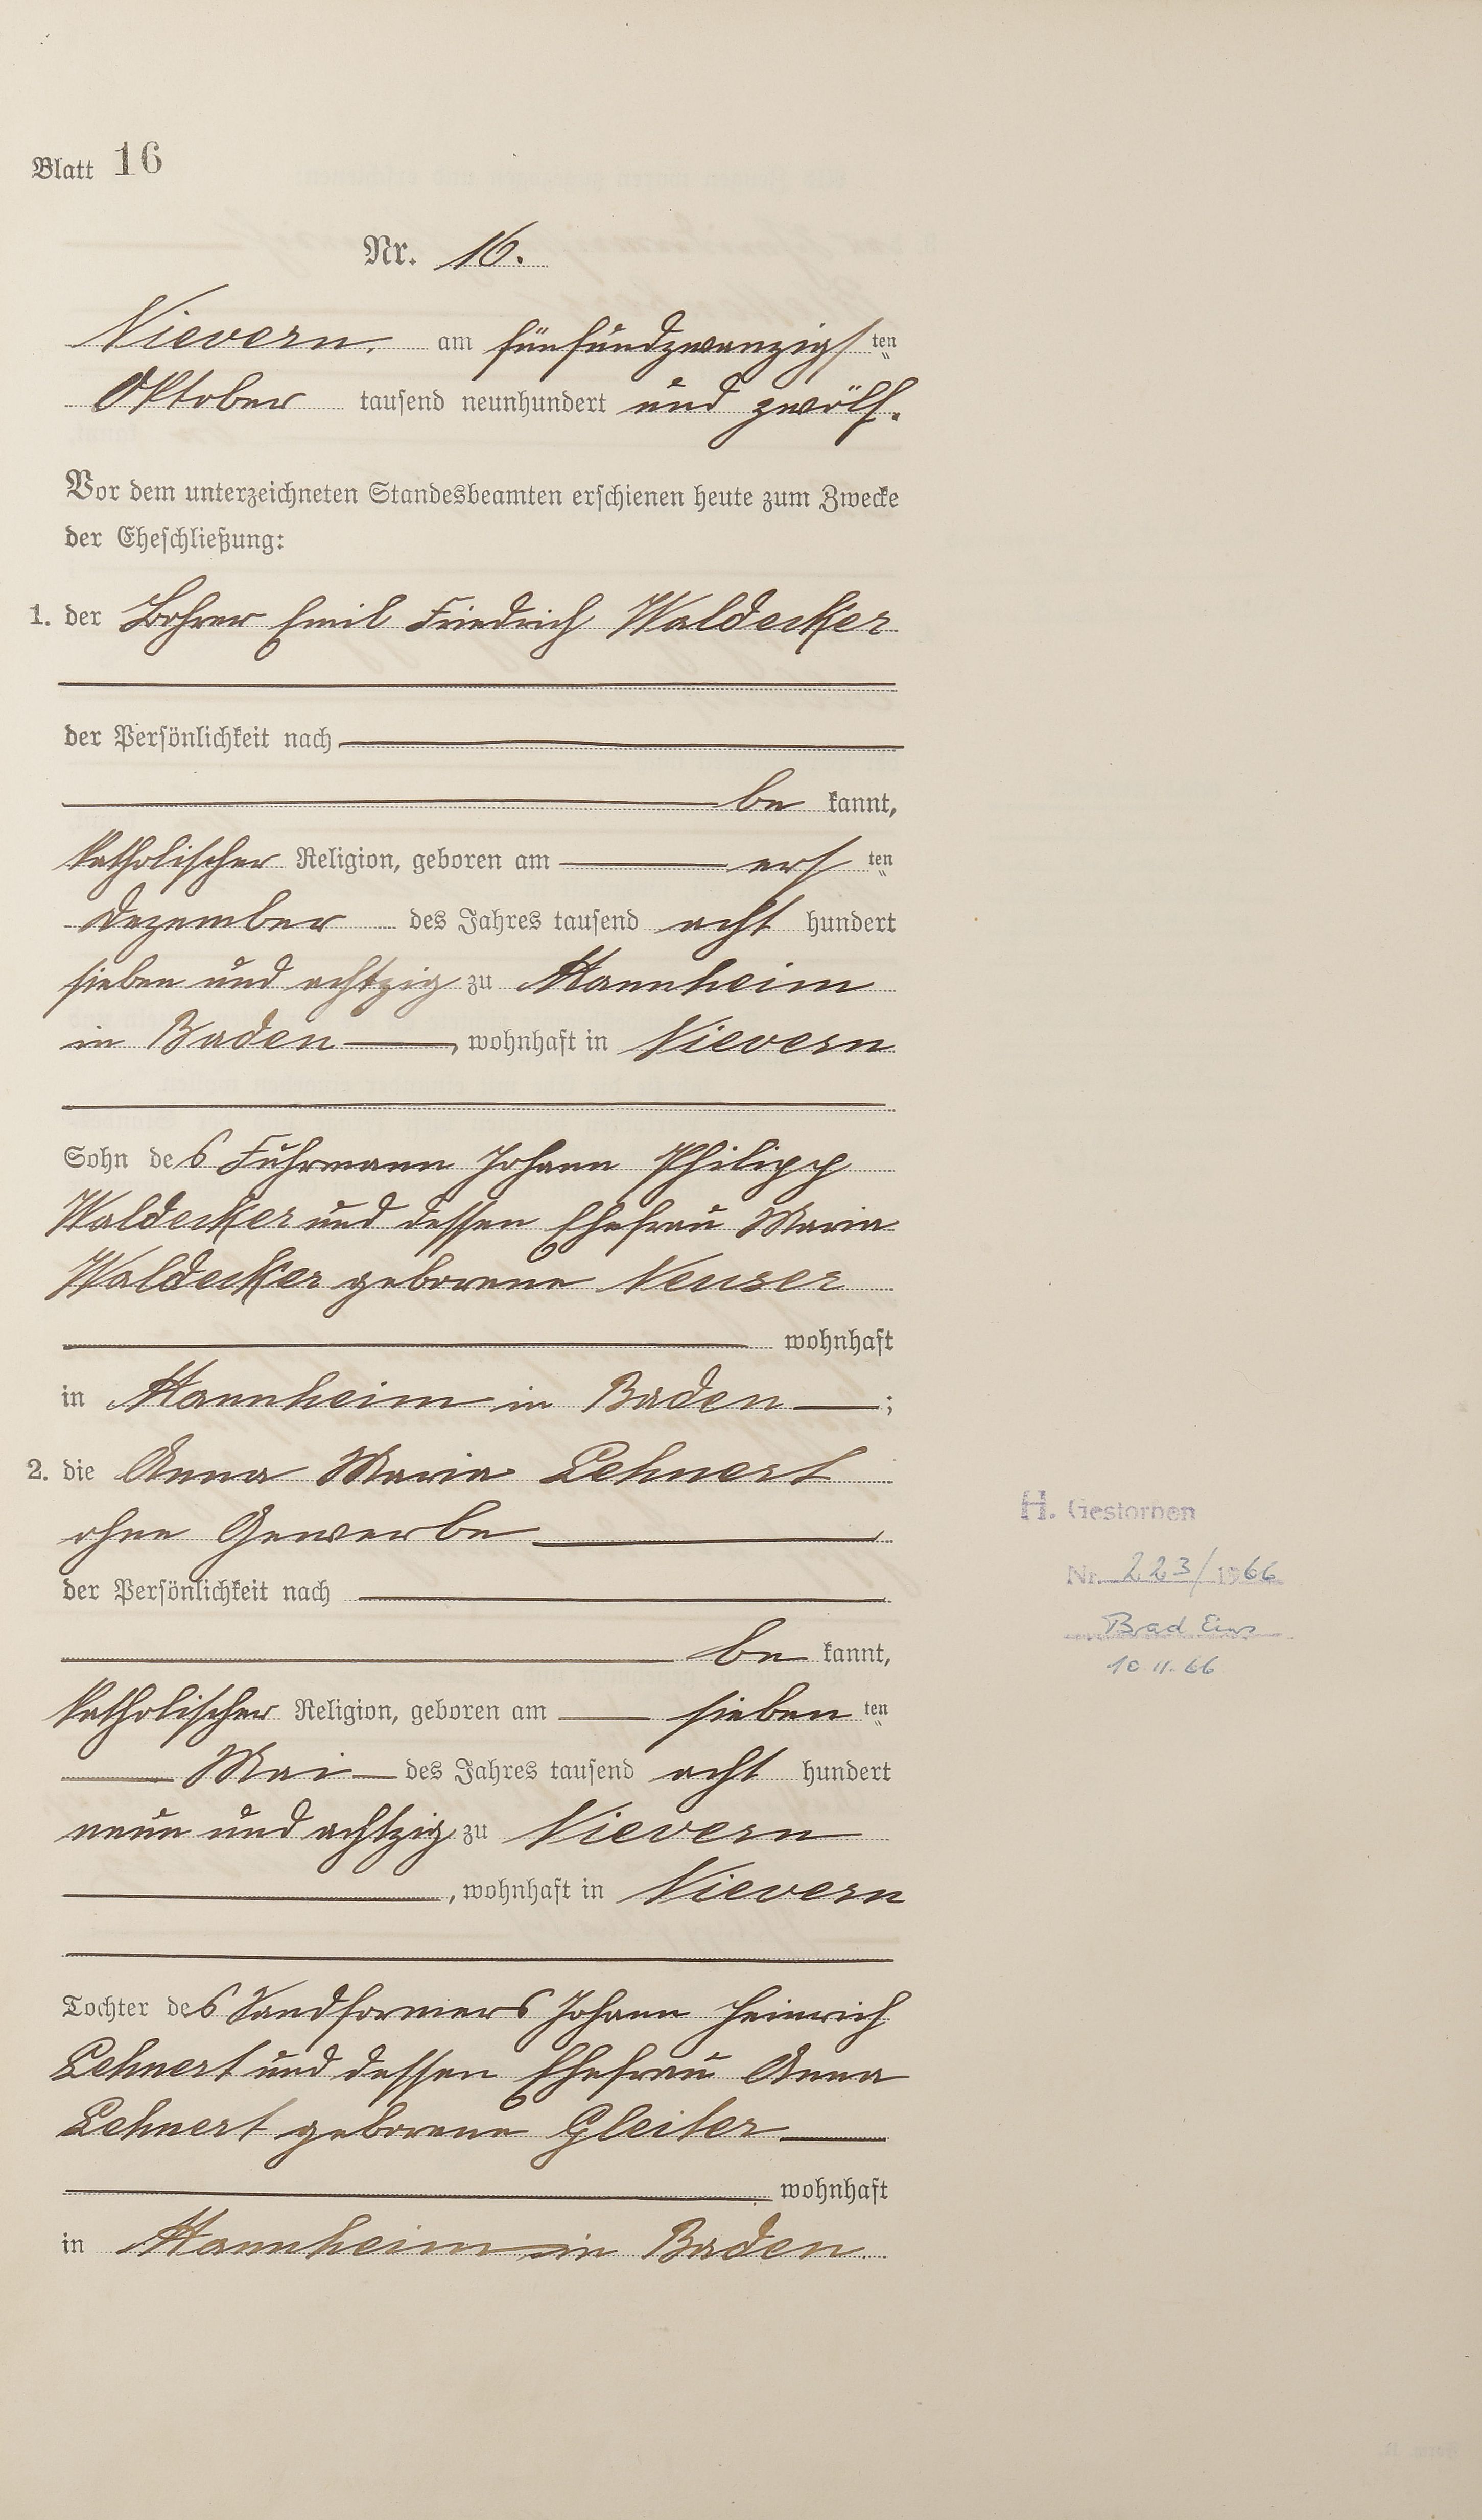 Blatt 16
Nr. 16.
Nievern, am fünfundzwanzigsten
Oktober tausend neunhundert und zwölf.
Vor dem unterzeichneten Standesbeamten erschienen heute zum Zwecke
der Eheschließung:
1. der Bohrer Emil Friedrich Waldecker
der Persönlichkeit nach
be kannt,
katholischer Religion, geboren am ersten
Dezember des Jahres tausend acht hundert
sieben und achtzig zu Mannheim
in Baden, wohnhaft in Nievern
Sohn des Fuhrmann Johann Philipp
Waldecker und dessen Ehefrau Maria
Waldecker geborene Neuser
wohnhaft
in Mannheim in Baden;
2. die Anna Maria Lehnert
ohne Gewerbe
der Persönlichkeit nach
be kannt,
katholischer Religion, geboren am siebenten
Mai des Jahres tausend acht hundert
neun und achtzig zu Nievern
, wohnhaft in Nievern
Tochter des Sandformers Johann Heinrich
Lehnert und dessen Ehefrau Anna
Lehnert geborene Gleiter
wohnhaft
in Mannheim in Baden
H. Gestorben
Nr. 223/1966
Bad Ems
10.11.66